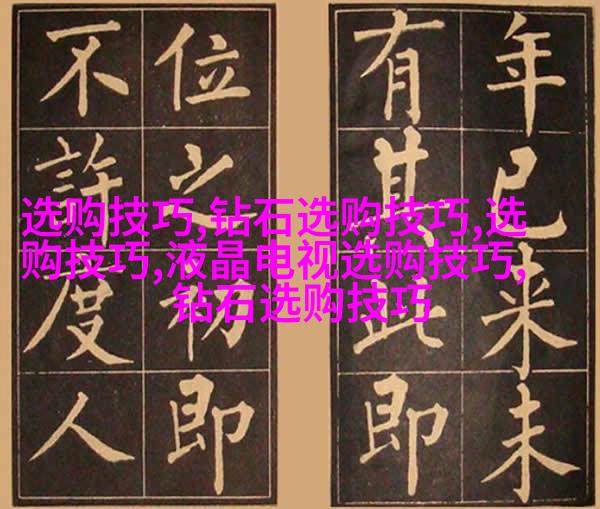 年已来未
有其此即
位之初即
不許度人
选购技巧,钻石选购技巧,选
购技巧,液晶电视选购技巧,
钻石选购技巧